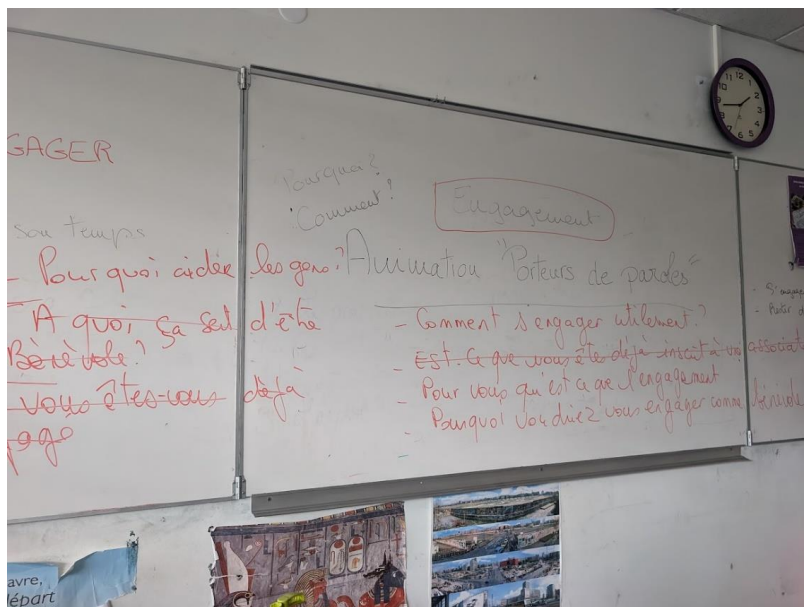 GAGER
son temps
- Pourquoi aider les gens?
A quoi ça sert d'être
Bénévole?
- vous êtes-vous déjà
Pourquoi?
Comment?
Engagement
Animation "Porteurs de paroles"
- Comment s'engager utilement?
- Est-ce que vous êtes déjà inscrit à une associat
- Pour vous qu'est ce que l'engagement
- Pourquoi voudriez vous engager comme bénévole
avre,
départ
12
1
2
3
4
5
6
7
8
9
10
11